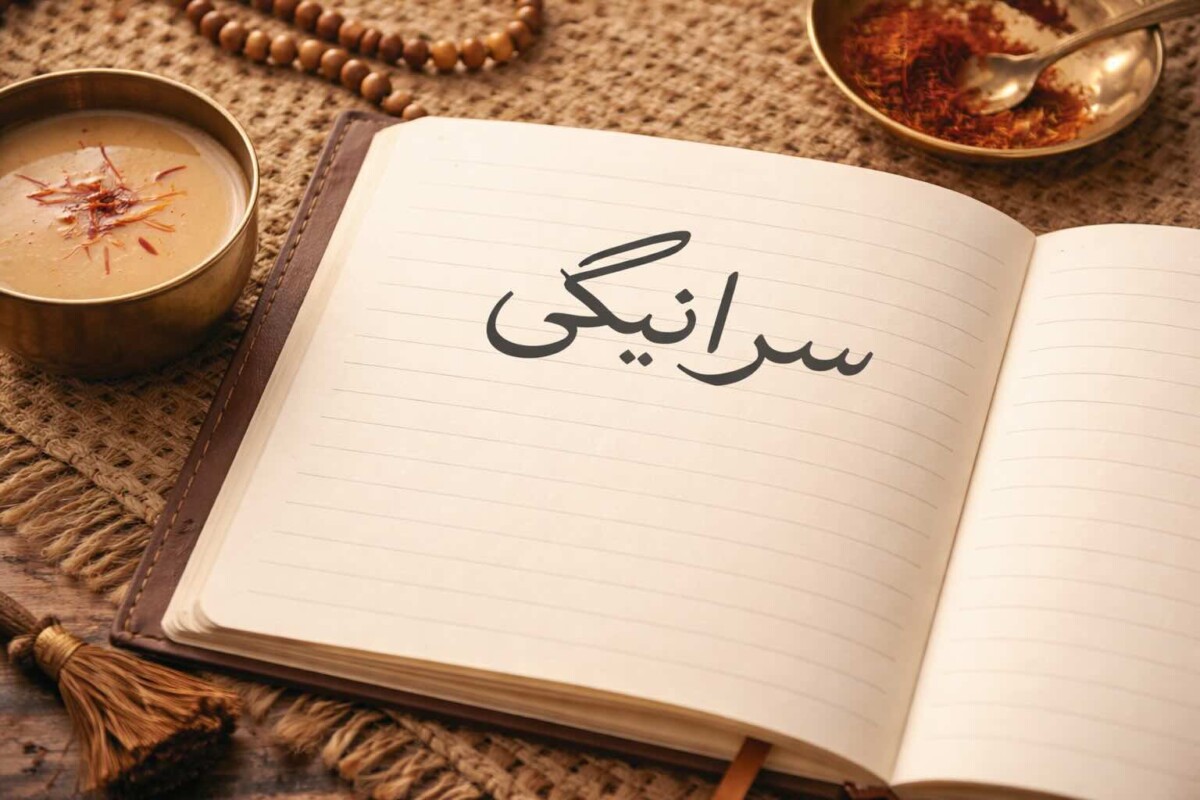 سرانیگی